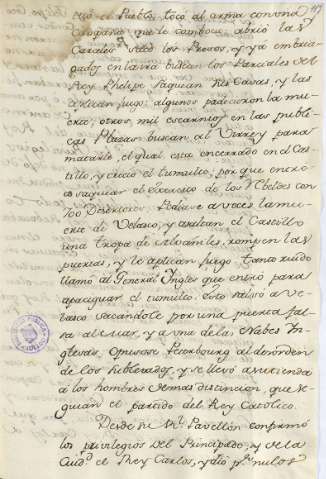 tero el Pueblo, tocó al arma con una
Campana, que le combocó, abrió las
Carceles, saltó los Presos, y ya embria-
gados en la ira buscan los Parciales del
Rey Phelipe, saquean sus Casas, y las
aplican fuego: algunos padecieron la mu-
erte; otros, mil escarnios en las publi-
cas Plazas: buscan al Virrey para
matarlo, el qual esta encerrado en el Cas-
tillo, y creció el tumulto, por que entró
a saquear el Exercito de los Rebeldes con
los Desertores. Pidiose a voces la mu-
erte de Velasco, y asaltan el Castillo
una tropa de Miqueletes, rompen las
puertas, y le aplican fuego: tanto ruido
llamó al General Ingles que entró para
apaciguar el tumulto. Esto salvó a Ve-
lasco sacandole por una puerta fal-
sa al mar, y a una de las Nabes In-
glesas, Opusose Peterbourg al desorden
de los Rebelados, y se llevó a su tienda
a los hombres de mas distincion, que se-
guian el partido del Rey Catolico.
Desde su Rl. Pavellón confirmó
los privilegios del Principado, y de la
Ciudd. el Rey Carlos, y dio pr. nulos